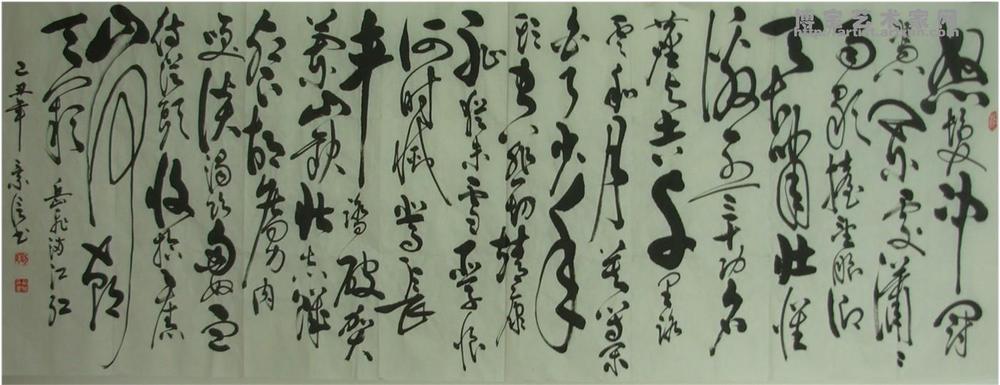 怒髮冲冠
憑闌處瀟瀟
雨歇擡望眼仰
天長嘯壯懷
激烈三十功名
塵與土八千里路
雲和月莫等閑
白了少年
頭空悲切靖康
恥猶未雪臣子恨
何時滅駕長
車踏破賀
蘭山缺壯志飢
餐胡虜肉
笑談渴飲匈奴血
待從頭收拾舊
山河朝
天闕 岳飛滿江紅
己丑年 書
博宝艺术家网
http://artist.artxun.com